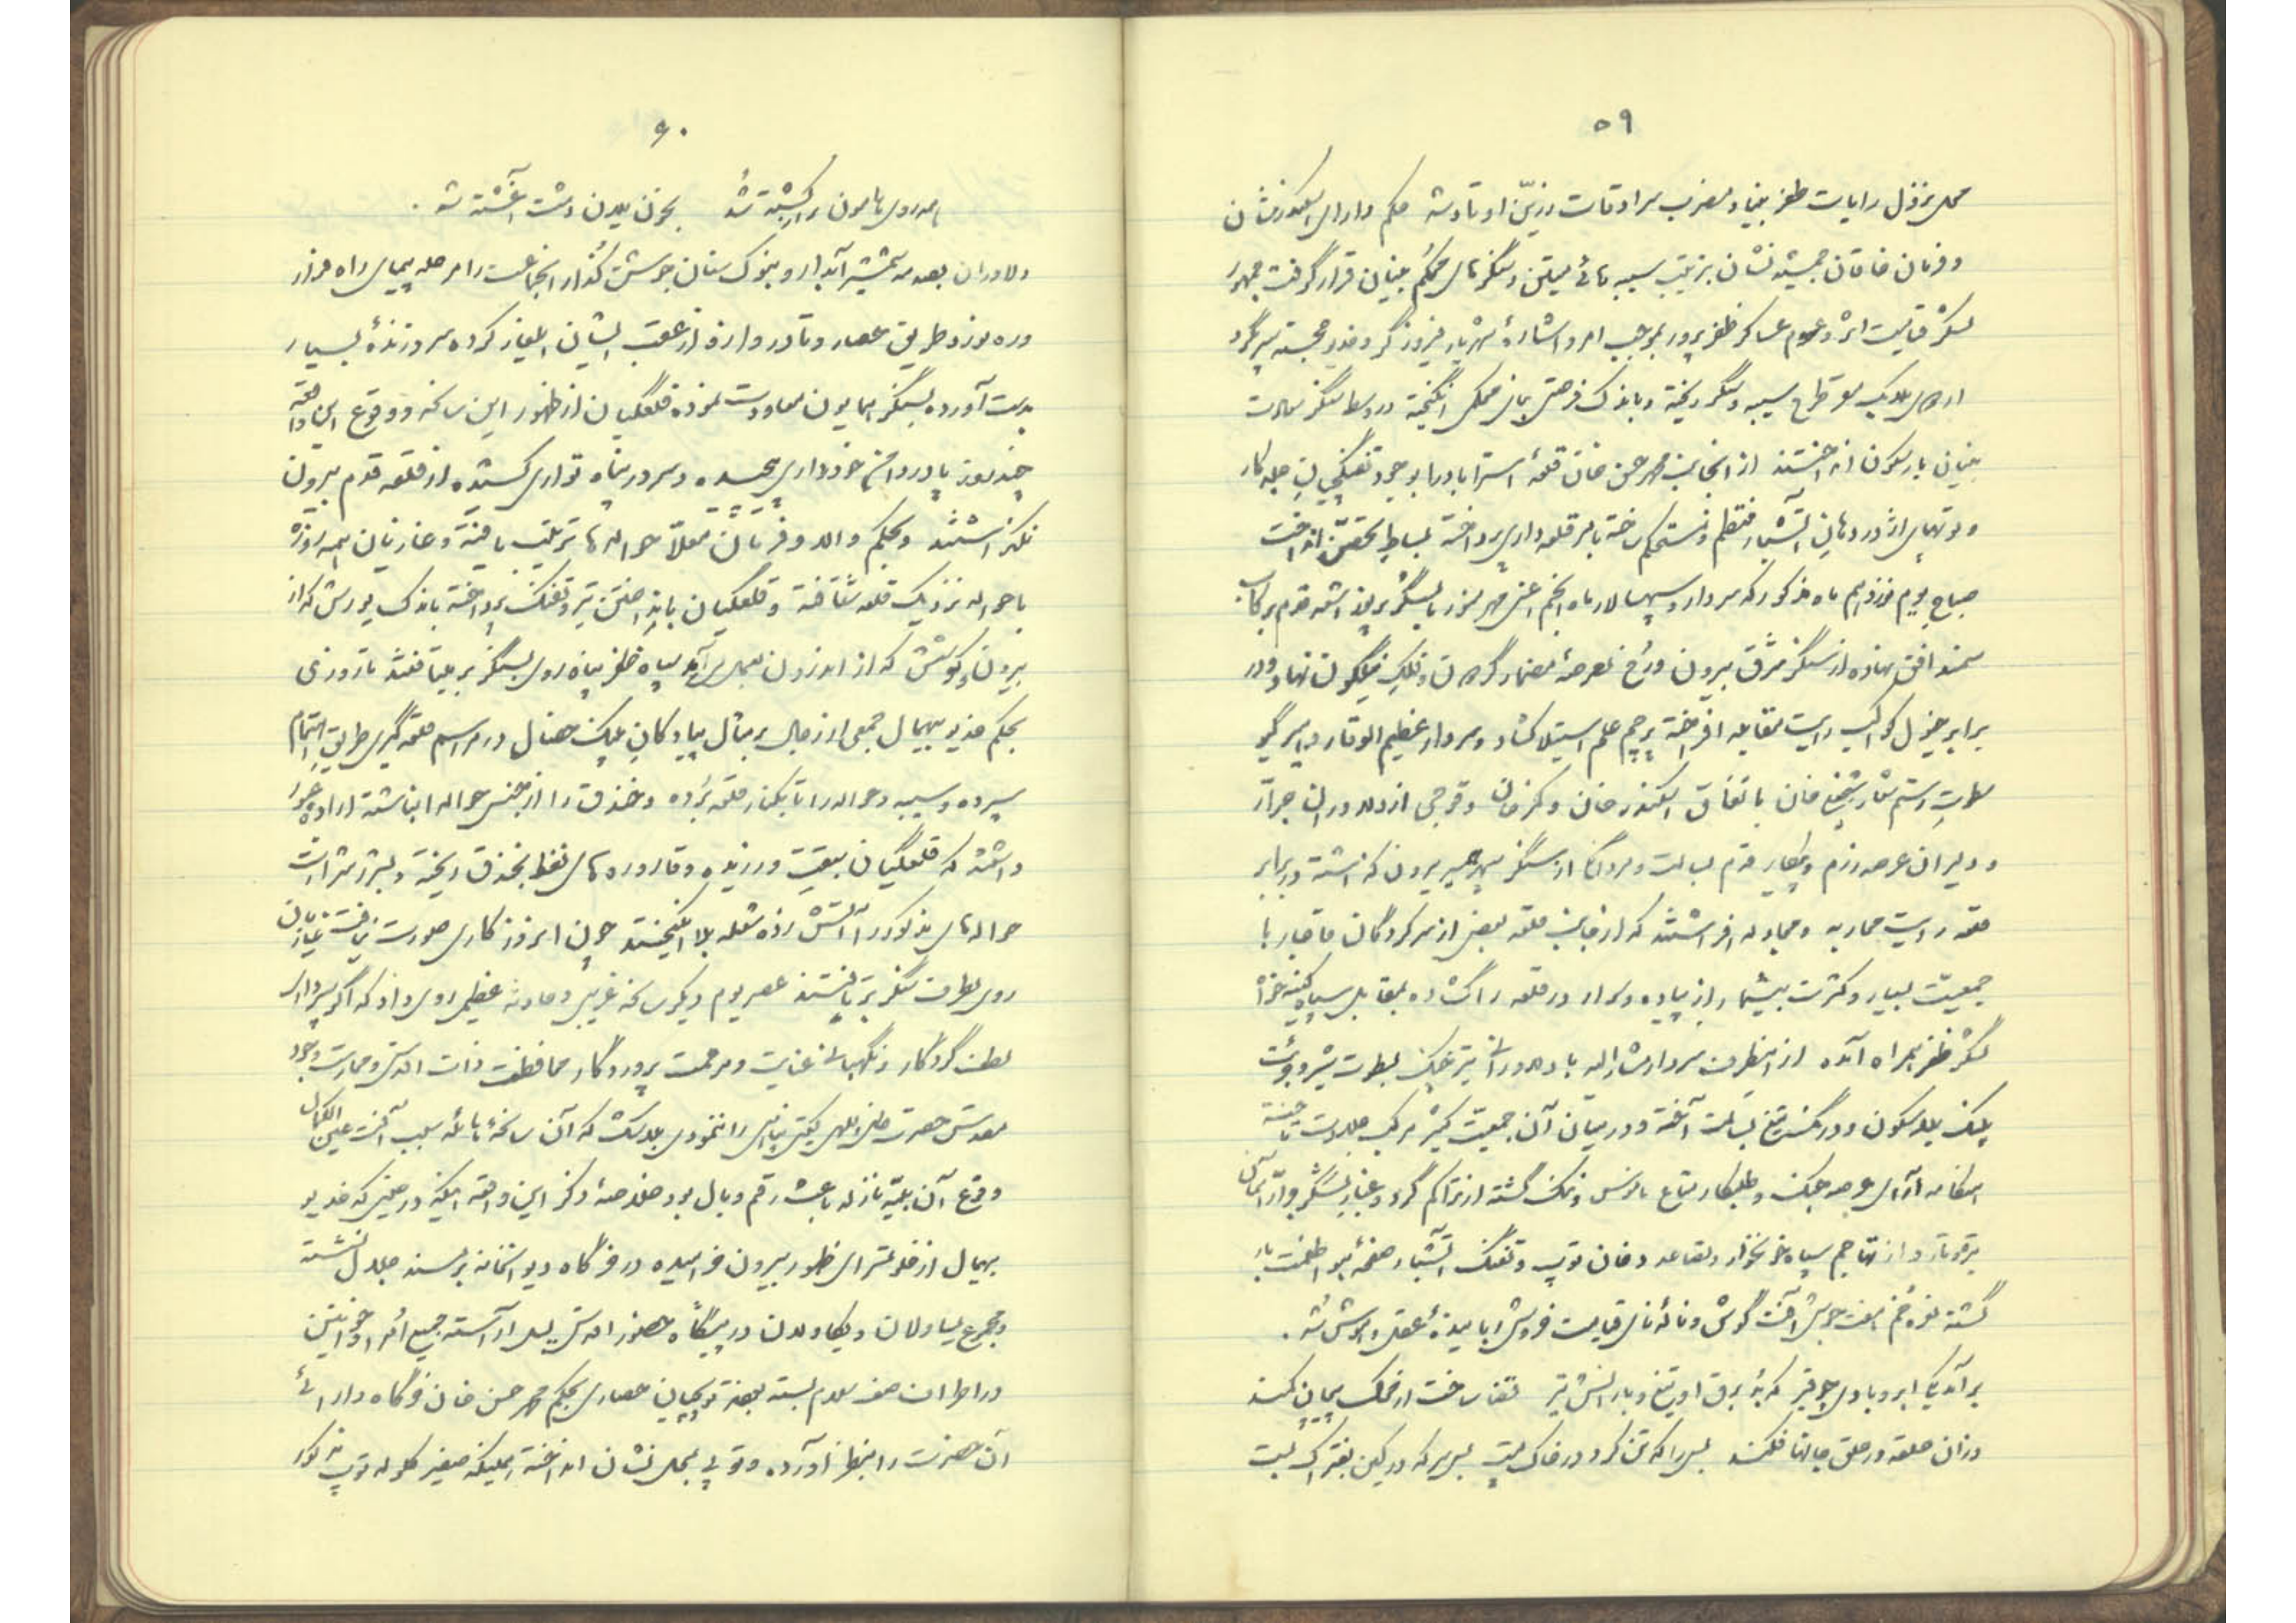 ۵۹
محل نزول رایات ظفر بنیاد و مضرب سرادقات زرین اوتاد شد حکم دارای اسکندر شان
و فرمان خاقان جمشید نشان بترتیب سیبه های متین و سنگرهای محکم بنیان قرار گرفت جمهور
لشکر قیامت اثر و عموم عساکر ظفر پرور بموجب امر و اشارهٔ شهریار فیروزگر و خدیو خجسته سیر گرد
سیبه و سنگر ریخته و باندک فرصتی بنای محکمی انگیخته در وسط سنگر
بنیان بار سکون انداختند از آنجانب محمد حسن خان قلعهٔ استراباد را بوجود تفنگچیان جلد کار
و توپهای اژدر دهان آتشبار منتظم و مستحکم ساخته بامر قلعه داری پرداخته بساط تحصن انداخت
صباح یوم نوزدهم ماه مذکور که سردار و سپهسالار ماه انجم اعنی مهر انور با لشکر پرتو اشعه قدم بر رکاب
سمند افق نهاده از سنگر مشرق بیرون و رخ بعرصهٔ مضمار گردون و فلک نیلگون نهاد و در
برابر خیول کواکب رایت مقابله افراخته پرچم علم استیلا گشاد سردار عظیم الوقار و امیر گیو
صولت رستم شعار شیخعلی خان باتفاق اسکندر خان و کرمخان و فوجی از دلاوران جرار
و دلیران عرصه رزم و پیکار قدم بسالت و مردانگی از سنگر سپهر سیر بیرون گذاشته در برابر
قلعه رایت محاربه و مجادله افراشتند که از جانب قلعه بعضی از سرکردگان قاجار با
جمعیت بسیار و کثرت بیشمار از پیاده و سوار در قلعه را گشاده بمقابل سپاه کینه خواه
لشکر ظفر همراه آمده از اینطرف سردار مشارالیه با دلاوران تیز چنگ بصولت شیر و جرئت
پلنگ بلا سکون و درنگ تیغ بسالت آخته و در میان آن جمعیت کثیر مرکب جلادت تاخته
هنگامه آرای عرصه جنگ و طلبکار متاع ناموس و ننگ گشته از تراکم گرد و غبار لشکر
تیره و تار و از تهاجم سپاه خونخوار و تصاعد دخان توپ و تفنگ آتشبار صفحهٔ هوا ظلمت بار
گشته نعره خم هفت جوش آفت گوش و نالهٔ نای قیامت فروش ربایندهٔ عقل و هوش شد .
برآمد یکی ابر و بادی چو قیر که بد برق او تیغ و بارانش تیر قضا ساخت از خنگ پیچان کمند
وزان حلقه در حلق جانها فکند بسی را که تن کرد در خاک پست بسی سر که در کین بفتراک بست
۶۰
همه روی هامون پر از کشته شد بخون یلان دشت آغشته شد .
دلاوران بصدمه شمشیر آبدار و بنوک سنان جوشن گذار آنجماعت را مرحله پیمای راه فرار
و ره نورد طریق حصار و تا در دروازه از عقب ایشان ایلغار کرده سر و زندهٔ بسیار
بدست آورده بسنگر همایون معاودت نموده قلعگیان از ظهور این سانحه و وقوع این واقعه
چند روز پا در دامن خودداری پیچیده و سر در پناه تواری کشیده از قلعه قدم بیرون
نگذاشتند و بحکم والا و فرمان معلا حواله ها ترتیب یافته و غازیان همه روزه
با حواله نزدیک قلعه شتافته و قلعگیان بانداختن تیر و تفنگ پرداخته باندک یورش که از
بیرون و کوشش که از اندرون بعمل می آمد سپاه ظفر پناه روی بسنگر بر میتافتند تا روزی
بحکم خدیو بیهمال جمعی از رجال بر مثال پیادگان پلنگ خصال در مراسم قلعه گیری طریق اهتمام
سپرده و سیبه و حواله را تا بکنار قلعه برده و خندق را از جنس حواله انباشته اراده عبور
داشتند که قلعگیان سبقت ورزیده و قاروره های نفط بخندق ریخته و بشرر شرارت
حواله های مذکور را آتش زده شعله بلا انگیختند چون امروز کاری صورت نیافت غازیان
روی بطرف سنگر برتافتند عصر یوم دیگر سانحه غریبی و حادثه عظیمی روی داد که اگر پرده دار
لطف کردگار و نگهبان عنایت و مرحمت پروردگار محافظت ذات اقدس و حمایت وجود
مقدس حضرت ظل اللهی گیتی پناهی را ننمودی بلاشک که آن سانحهٔ هایله سبب آفت عین الکمال
وقوع آن بلیه نازله باعث رقم وبال بود خلاصهٔ ذکر این واقعه اینکه در حینی که خدیو
بیهمال از خلوتسرای حضور بیرون خرامیده در خرگاه دیوانخانه بر مسند جلال نشسته
و مجموع یساولان و یکاولان در پیشگاه حضور اقدس یسل آراسته جمیع امراء و خوانین
در اطراف صف سلام بسته بودند توپچیان حصاری بحکم محمد حسن خان خرگاه دارائی
آن حضرت را بنظر آورده و توپی بمحل نشان انداخته همینکه صفیر گلوله توپ مذکور